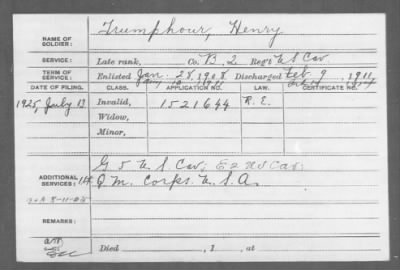 NAME OF SOLDIER: Trumphour, Henry
SERVICE: Late rank, Co. B, 2 Reg't U S Cav.
TERM OF SERVICE: Enlisted Jan. 28, 1908 Discharged Feb 9, 1911
DATE OF FILING. CLASS. APPLICATION NO. LAW. CERTIFICATE NO.
1925, July 13 Invalid, 1521644 R. E.
Widow,
Minor,
G 5 U.S. Cav; E 2 U S Cav;
ADDITIONAL SERVICES: Q. M. Corps. U. S. A.
8-11-25
REMARKS:
Died , 1 , at